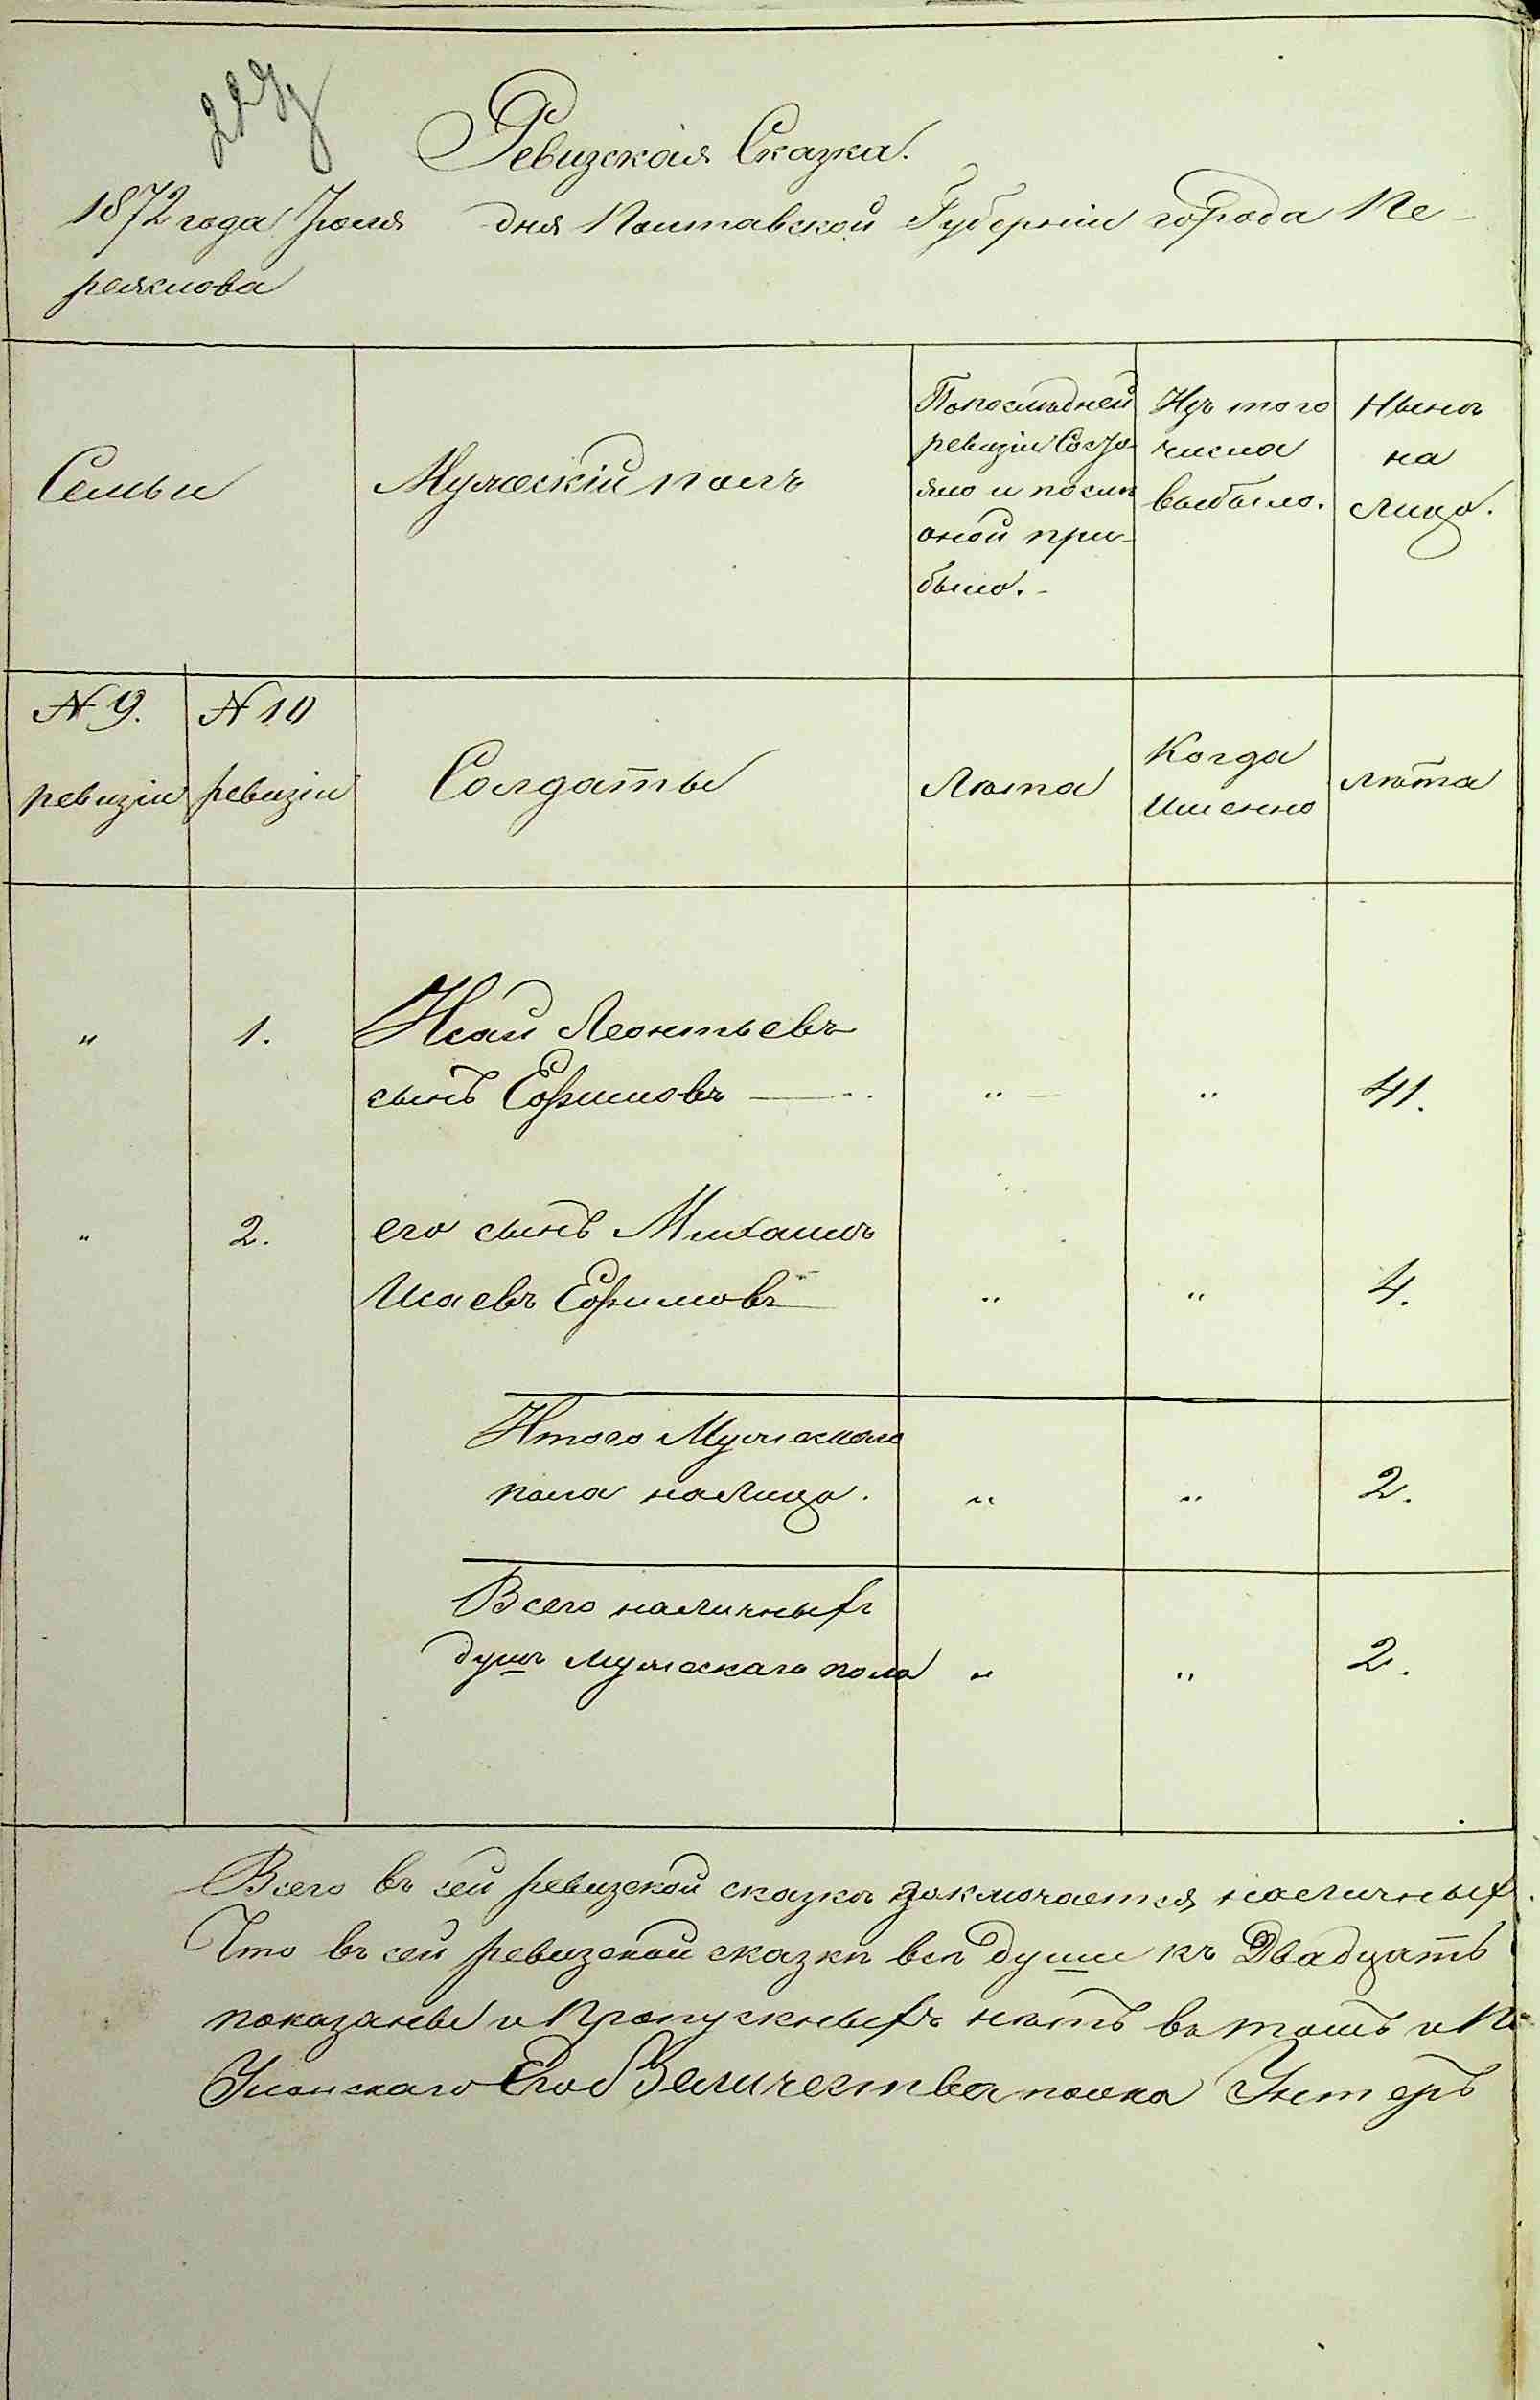 Ревизская Сказка.
1872 года Іюля дня Полтавской Губерніи города Пе-
реяслова
Семьи
Мужескій полъ
По последней
ревизіи Состо-
яло и после
оной при-
было.
Изъ того
числа
выбыло.
Ныне
на
лицо.
N 9. ревизіи
N 10 ревизіи
Солдаты
Лета
Когда
Именно
лета
" 1. Исай Леонтьевъ
сынъ Ефимовъ — " " 41.
" 2. его сынъ Михаилъ
Исаевъ Ефимовъ " " 4.
Итого Мужескаго
пола на лицо. " " 2.
Всего наличныхъ
душъ мужескаго пола " " 2.
Всего въ сей ревизской сказке заключается наличныхъ
Что въ сей ревизской сказке все души къ Двадцать
показаны и Пропускныхъ нетъ въ томъ и По
Уланскаго Его Величества полка Унтеръ